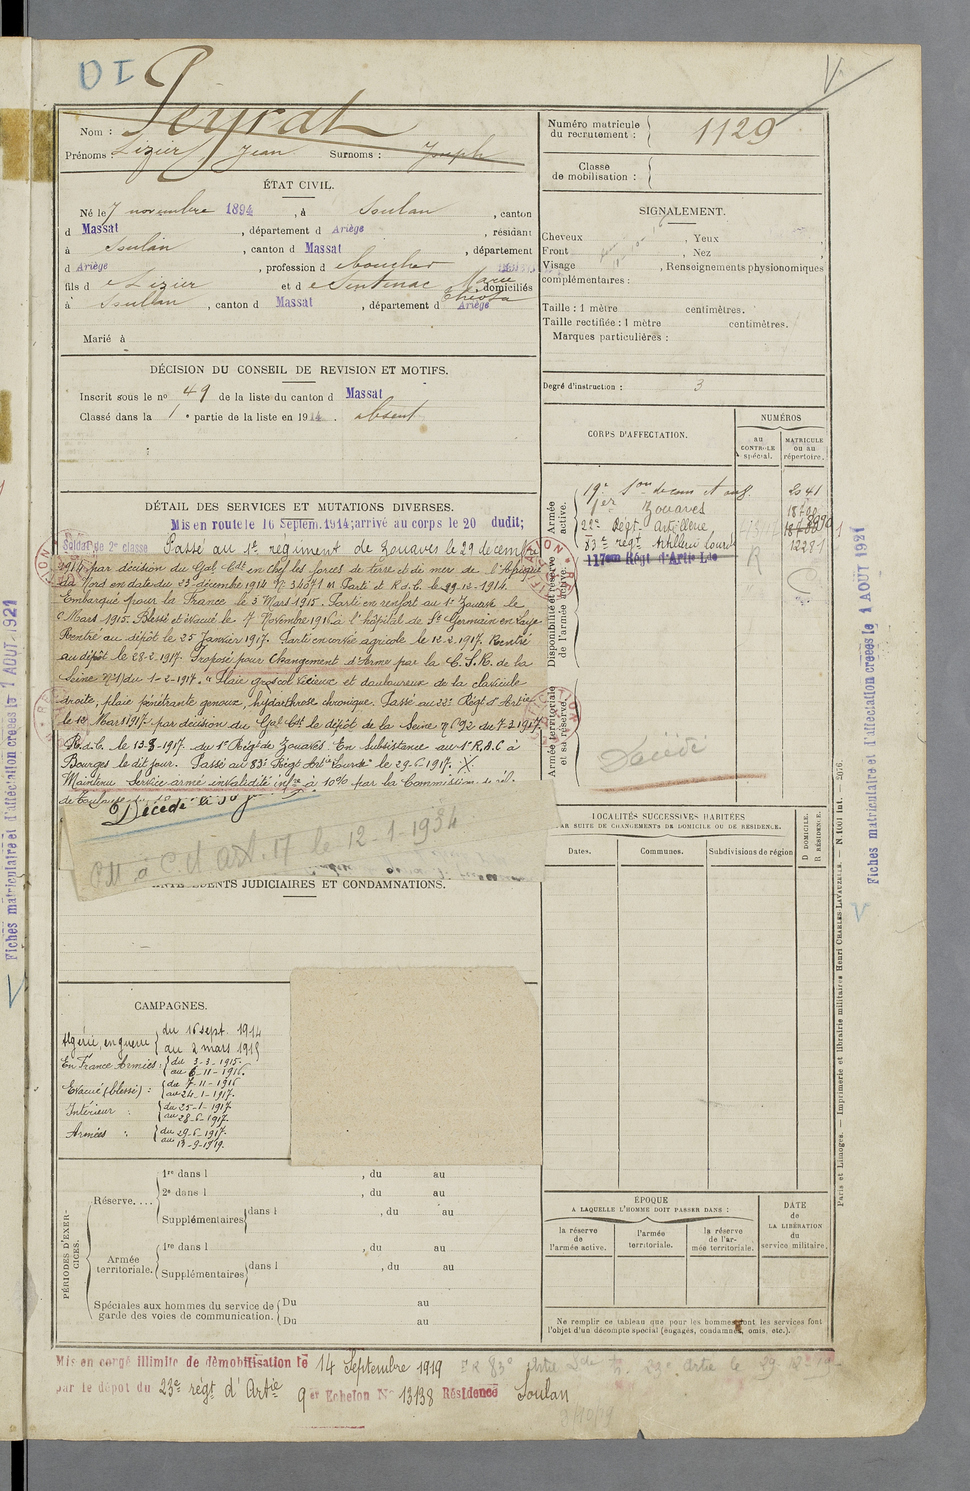 Nom : Peyrat
Prénoms : Lizier Jean Surnoms : Joseph
Numéro matricule du recrutement : 1129
Classe de mobilisation :
ÉTAT CIVIL.
Né le 7 novembre 1894, à Soulan, canton
d Massat, département d Ariège, résidant
à Soulan, canton d Massat, département
d Ariège, profession d boucher
fils d e Lizier et d e Sentenac Marie domiciliés
à Soullan, canton d Massat, département d Ariège
Marié à
SIGNALEMENT.
Cheveux , Yeux
Front , Nez
Visage , Renseignements physionomiques
complémentaires :
Taille : 1 mètre centimètres.
Taille rectifiée : 1 mètre centimètres.
Marques particulières :
Degré d'instruction : 3
DÉCISION DU CONSEIL DE REVISION ET MOTIFS.
Inscrit sous le no 49 de la liste du canton d Massat
Classé dans la 1e partie de la liste en 1914. absent
CORPS D'AFFECTATION.
NUMÉROS
au CONTROLE spécial.
MATRICULE ou au répertoire.
Armée active.
19e 2041
1er Zouaves
22e Régt Artillerie
83e regt Artillerie lourde 12281
117eme Régt d'Artie Lde
R
Disponibilité et réserve de l'armée active.
Armée territoriale et sa réserve.
Décédé
DÉTAIL DES SERVICES ET MUTATIONS DIVERSES.
Mis en route le 16 Septem. 1914; arrivé au corps le 20 dudit;
Soldat de 2e classe Passé au 1er régiment de Zouaves le 29 decembre
1914 par décision du Gal Cdt en chef les forces de terre et de mer de l'Afrique
du Nord en date du 23 décembre 1914 No 3407 1M Parti et R.d.C. le 29-12-1914.
Embarqué pour la France le 3 Mars 1915. Parti en renfort au 1er Zouave le
Mars 1915. Blessé et évacué le 7 Novembre 1916 à l'hôpital de St Germain en Laye
Rentré au dépôt le 25 Janvier 1917. Parti en corvée agricole le 12-2-1917. Rentré
au dépôt le 28-2-1917. Proposé pour changement d'Arme par la C.S.R. de la
Seine No 1/ du 1-2-1917. "Plaie groscol vicieux et douloureux de la clavicule
droite, plaie pénétrante genoux, hydarthrose chronique. Passé au 22e Régt d'Artie
le 13 Mars 1917 par décision du Gal Cdt le dépôt de la Seine No 692 du 7-2-1917.
R.d.C. le 13-3-1917. du 1er Régt de Zouaves. En subsistance au 1er R.A.C à
Bourges le dit jour. Passé au 83e Régt Art "Lourde" le 29-6-1917.
Maintenu Service armé invalidité infre à 10% par la Commission de réf.
de Toulouse du
Décédé le
le 12-1-1934
ANTÉCÉDENTS JUDICIAIRES ET CONDAMNATIONS.
LOCALITÉS SUCCESSIVES HABITÉES
PAR SUITE DE CHANGEMENTS DE DOMICILE OU DE RÉSIDENCE.
Dates. Communes. Subdivisions de région
D DOMICILE.
R RÉSIDENCE.
CAMPAGNES.
Algérie, en guerre du 16 sept. 1914
au 2 mars 1915
En France Armées : du 3-3-1915.
au 6-11-1916.
Evacué (blessé) : du 7-11-1916
au 24-1-1917.
Intérieur : du 25-1-1917.
au 28-6-1917.
Armées : du 29-6-1917.
au 13-9-1919.
PÉRIODES D'EXERCICES.
Réserve....
1re dans l , du au
2e dans l , du au
Supplémentaires dans l , du au
Armée territoriale.
1re dans l , du au
Supplémentaires dans l , du au
Spéciales aux hommes du service de garde des voies de communication.
Du au
Du au
ÉPOQUE
A LAQUELLE L'HOMME DOIT PASSER DANS :
la réserve de l'armée active.
l'armée territoriale.
la réserve de l'armée territoriale.
DATE de LA LIBÉRATION du service militaire.
Ne remplir ce tableau que pour les hommes dont les services font
l'objet d'un décompte spécial (engagés, condamnés, omis, etc.).
Mis en congé illimité de démobilisation le 14 Septembre 1919
par le dépôt du 23e régt d'Artie 9er Echelon No 13138 Résidence Soulan
Fiches matriculaire et d'affectation créées le 1 AOUT 1921
Fiches matriculaire et d'affectation créées le 1 AOUT 1921
Paris et Limoges. — Imprimerie et librairie militaires Henri CHARLES-LAVAUZELLE. — N. 1001 Int. — 2076.